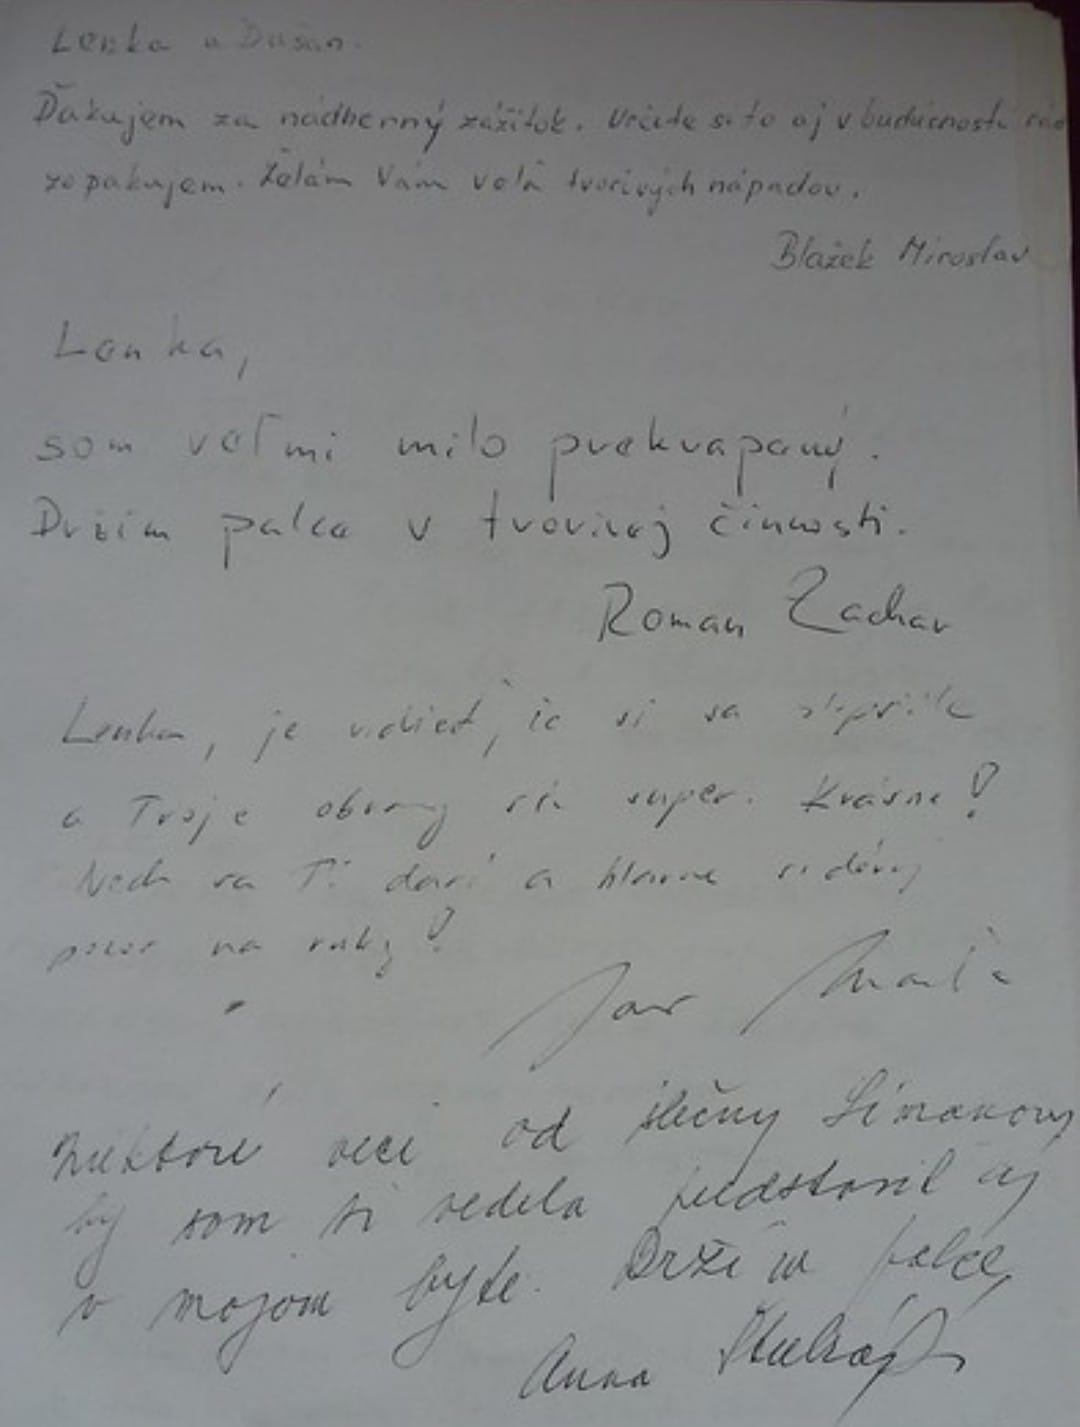 Lenka a Dušan.
Ďakujem za nádherný zážitok. Určite si to aj v budúcnosti rád
zopakujem. Želám Vám veľa tvorivých nápadov.
Blažek Miroslav
Lenka,
som veľmi milo prekvapaný.
Držím palce v tvorivej činnosti.
Roman Zachar
Lenka, je vidieť, že si sa zlepšila
a Tvoje obrazy sú super. Krásne!
Nech sa Ti darí a hlavne si dávaj
pozor na ruky!
Niektoré veci od slečny Simanovy
by som si vedela predstaviť aj
v mojom byte. Držím palce,
Anna